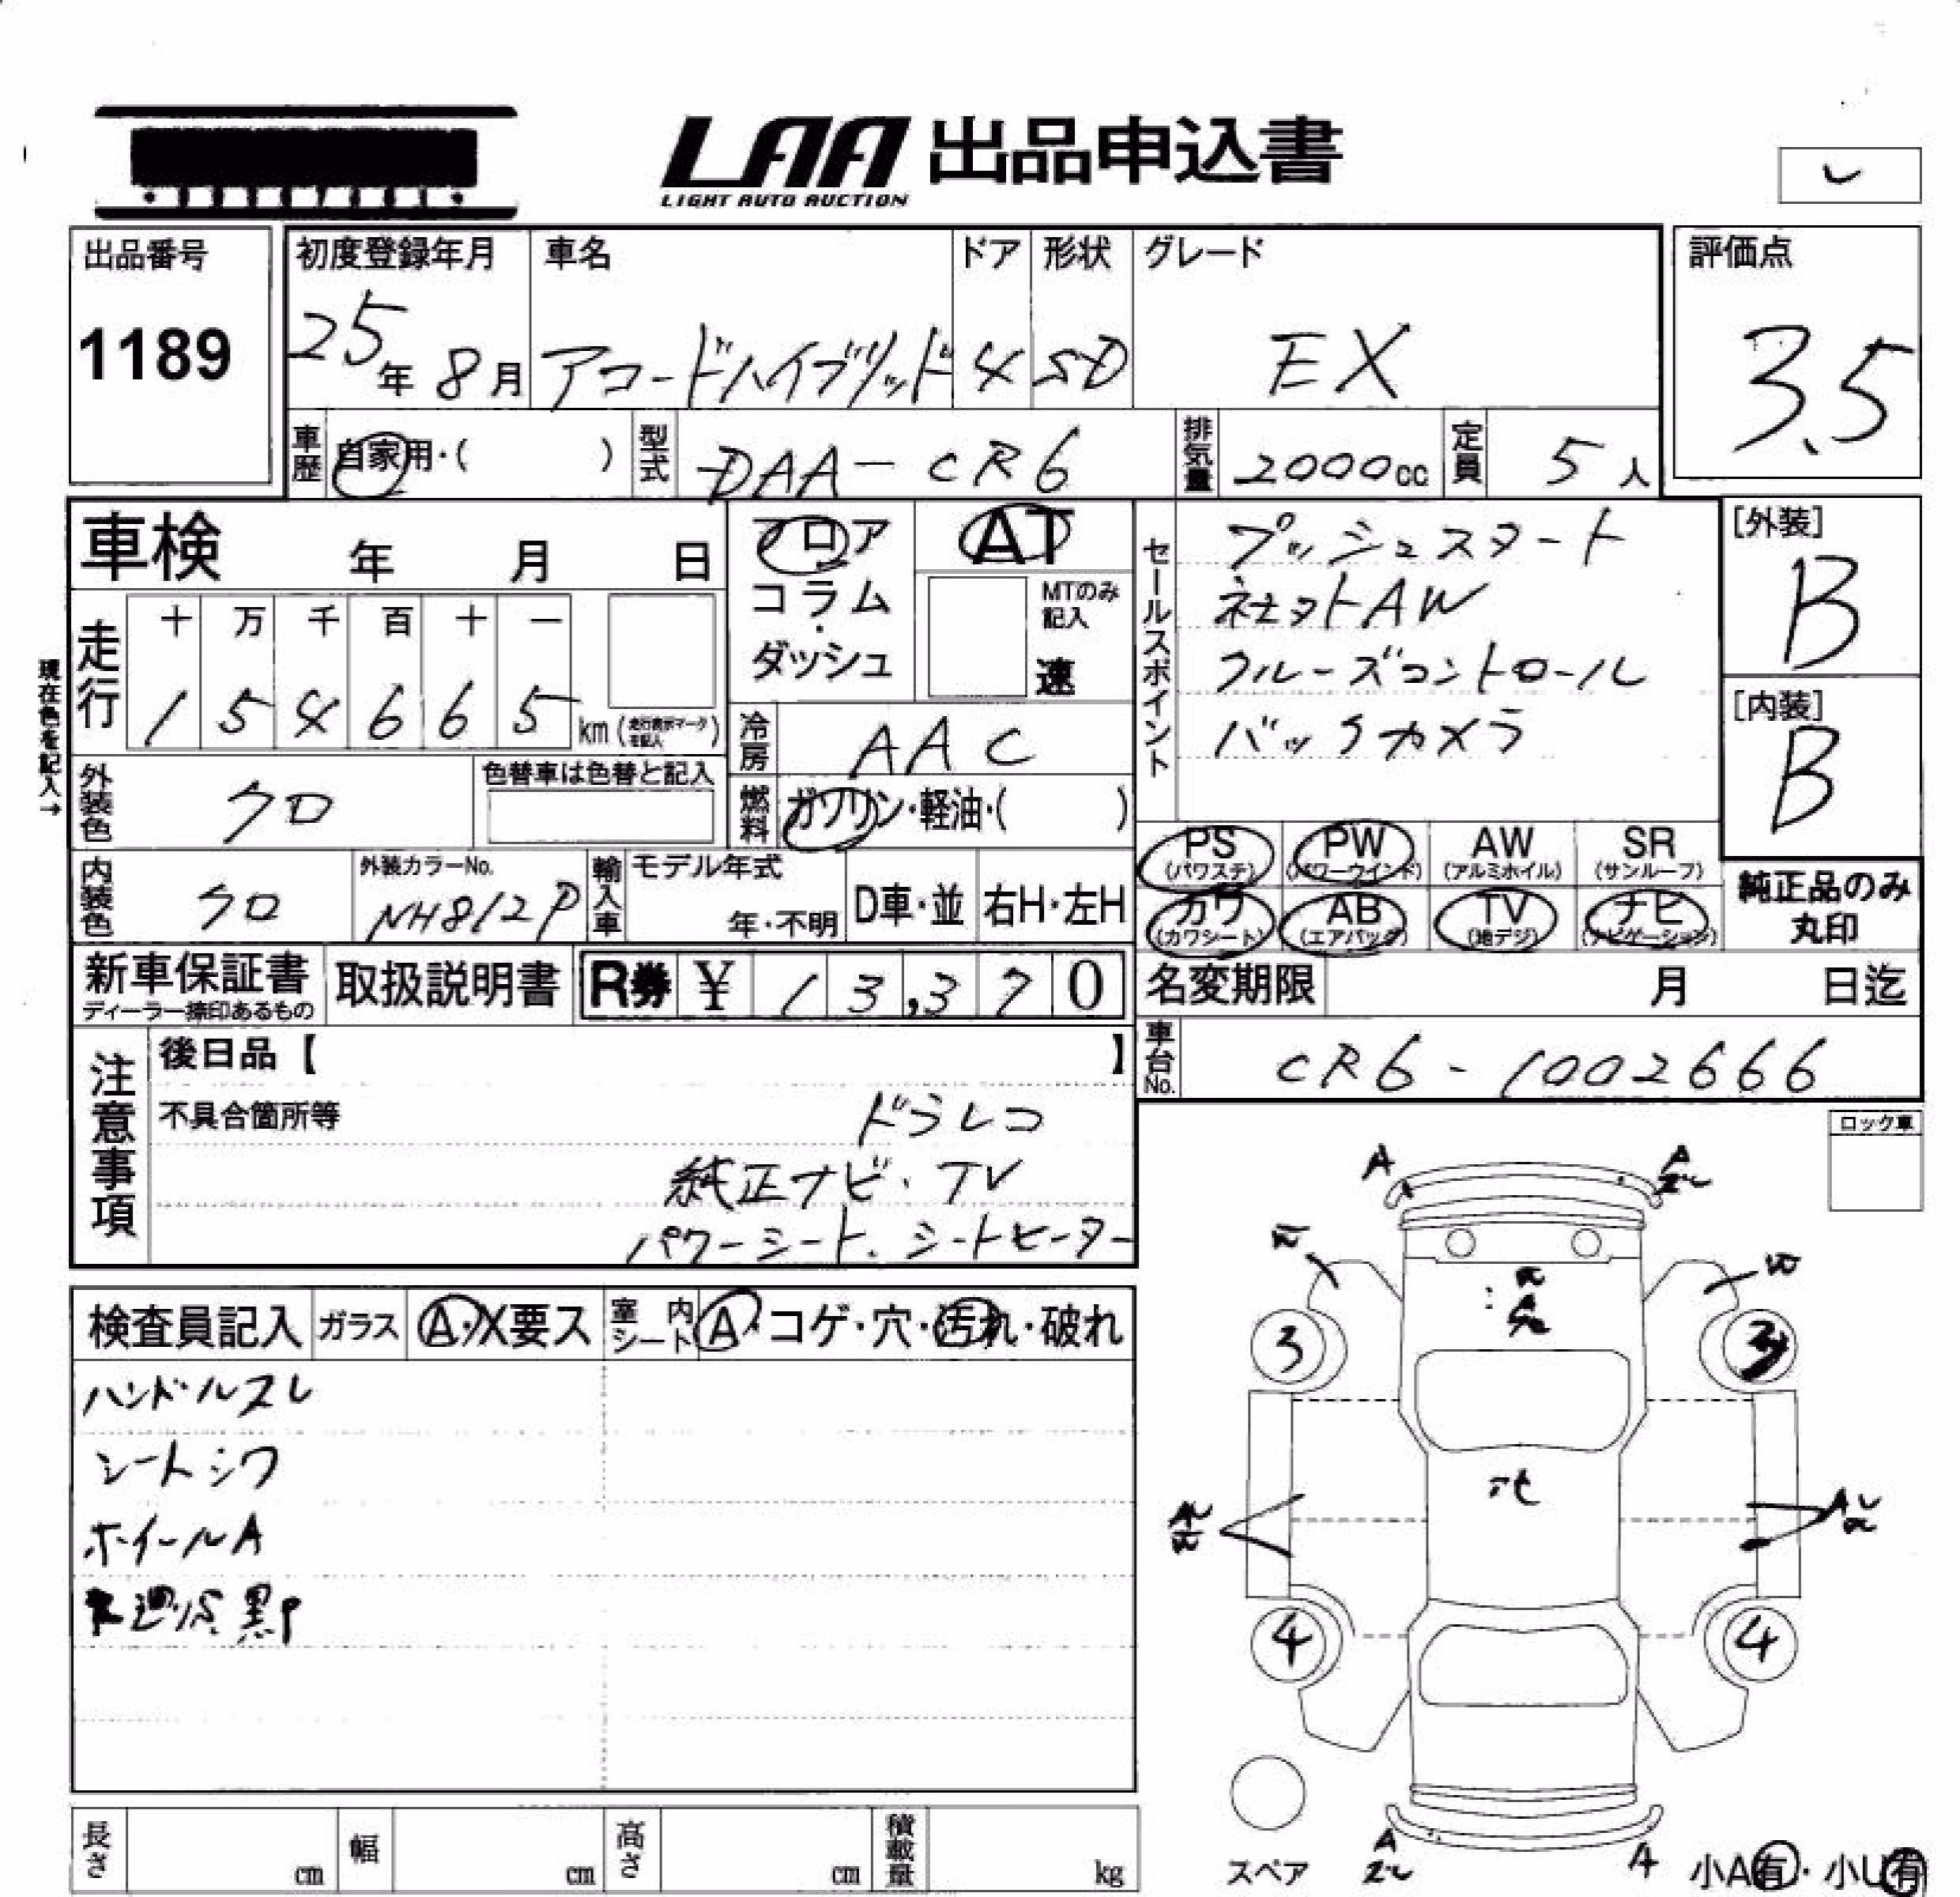 LAA 出品申込書
LIGHT AUTO AUCTION
出品番号
1189
初度登録年月
25年 8月
車名
アコードハイブリッド
ドア
4
形状
SD
グレード
EX
評価点
3.5
車歴
自家用・( )
型式
DAA-CR6
排気量
2000cc
定員
5人
車検 年 月 日
フロア
コラム
・
ダッシュ
AT
MTのみ
記入
速
セールスポイント
プッシュスタート
ネットAW
クルーズコントロール
バックカメラ
[外装]
B
[内装]
B
現在色を記入→
走行
十 万 千 百 十 一
1 5 4 6 6 5 km (走行表示マークを記入)
冷房
AAC
外装色
クロ
色替車は色替と記入
燃料
ガソリン・軽油・( )
PS
(パワステ)
PW
(パワーウインド)
AW
(アルミホイル)
SR
(サンルーフ)
カワ
(カワシート)
AB
(エアバック)
TV
(地デジ)
ナビ
(ナビゲーション)
純正品のみ
丸印
内装色
クロ
外装カラーNo.
NH812P
輸入車
モデル年式
年・不明
D車・並
右H・左H
新車保証書
ディーラー捺印あるもの
取扱説明書
R券 ¥ 13,370
名変期限 月 日迄
車台No.
CR6-1002666
注意事項
後日品【 】
不具合箇所等
ドラレコ
純正ナビ・TV
パワーシート、シートヒーター
ロック車
検査員記入
ガラス
A・X要ス
室内シート
A・コゲ・穴・汚れ・破れ
ハンドルスレ
シートシワ
ホイールA
A
A
3
3
4
4
A
A
スペア
小A有・小U有
長さ cm
幅 cm
高さ cm
積載量 kg